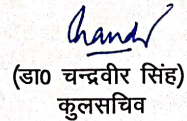 Chandr
(डा0 चन्द्रवीर सिंह)
कुलसचिव